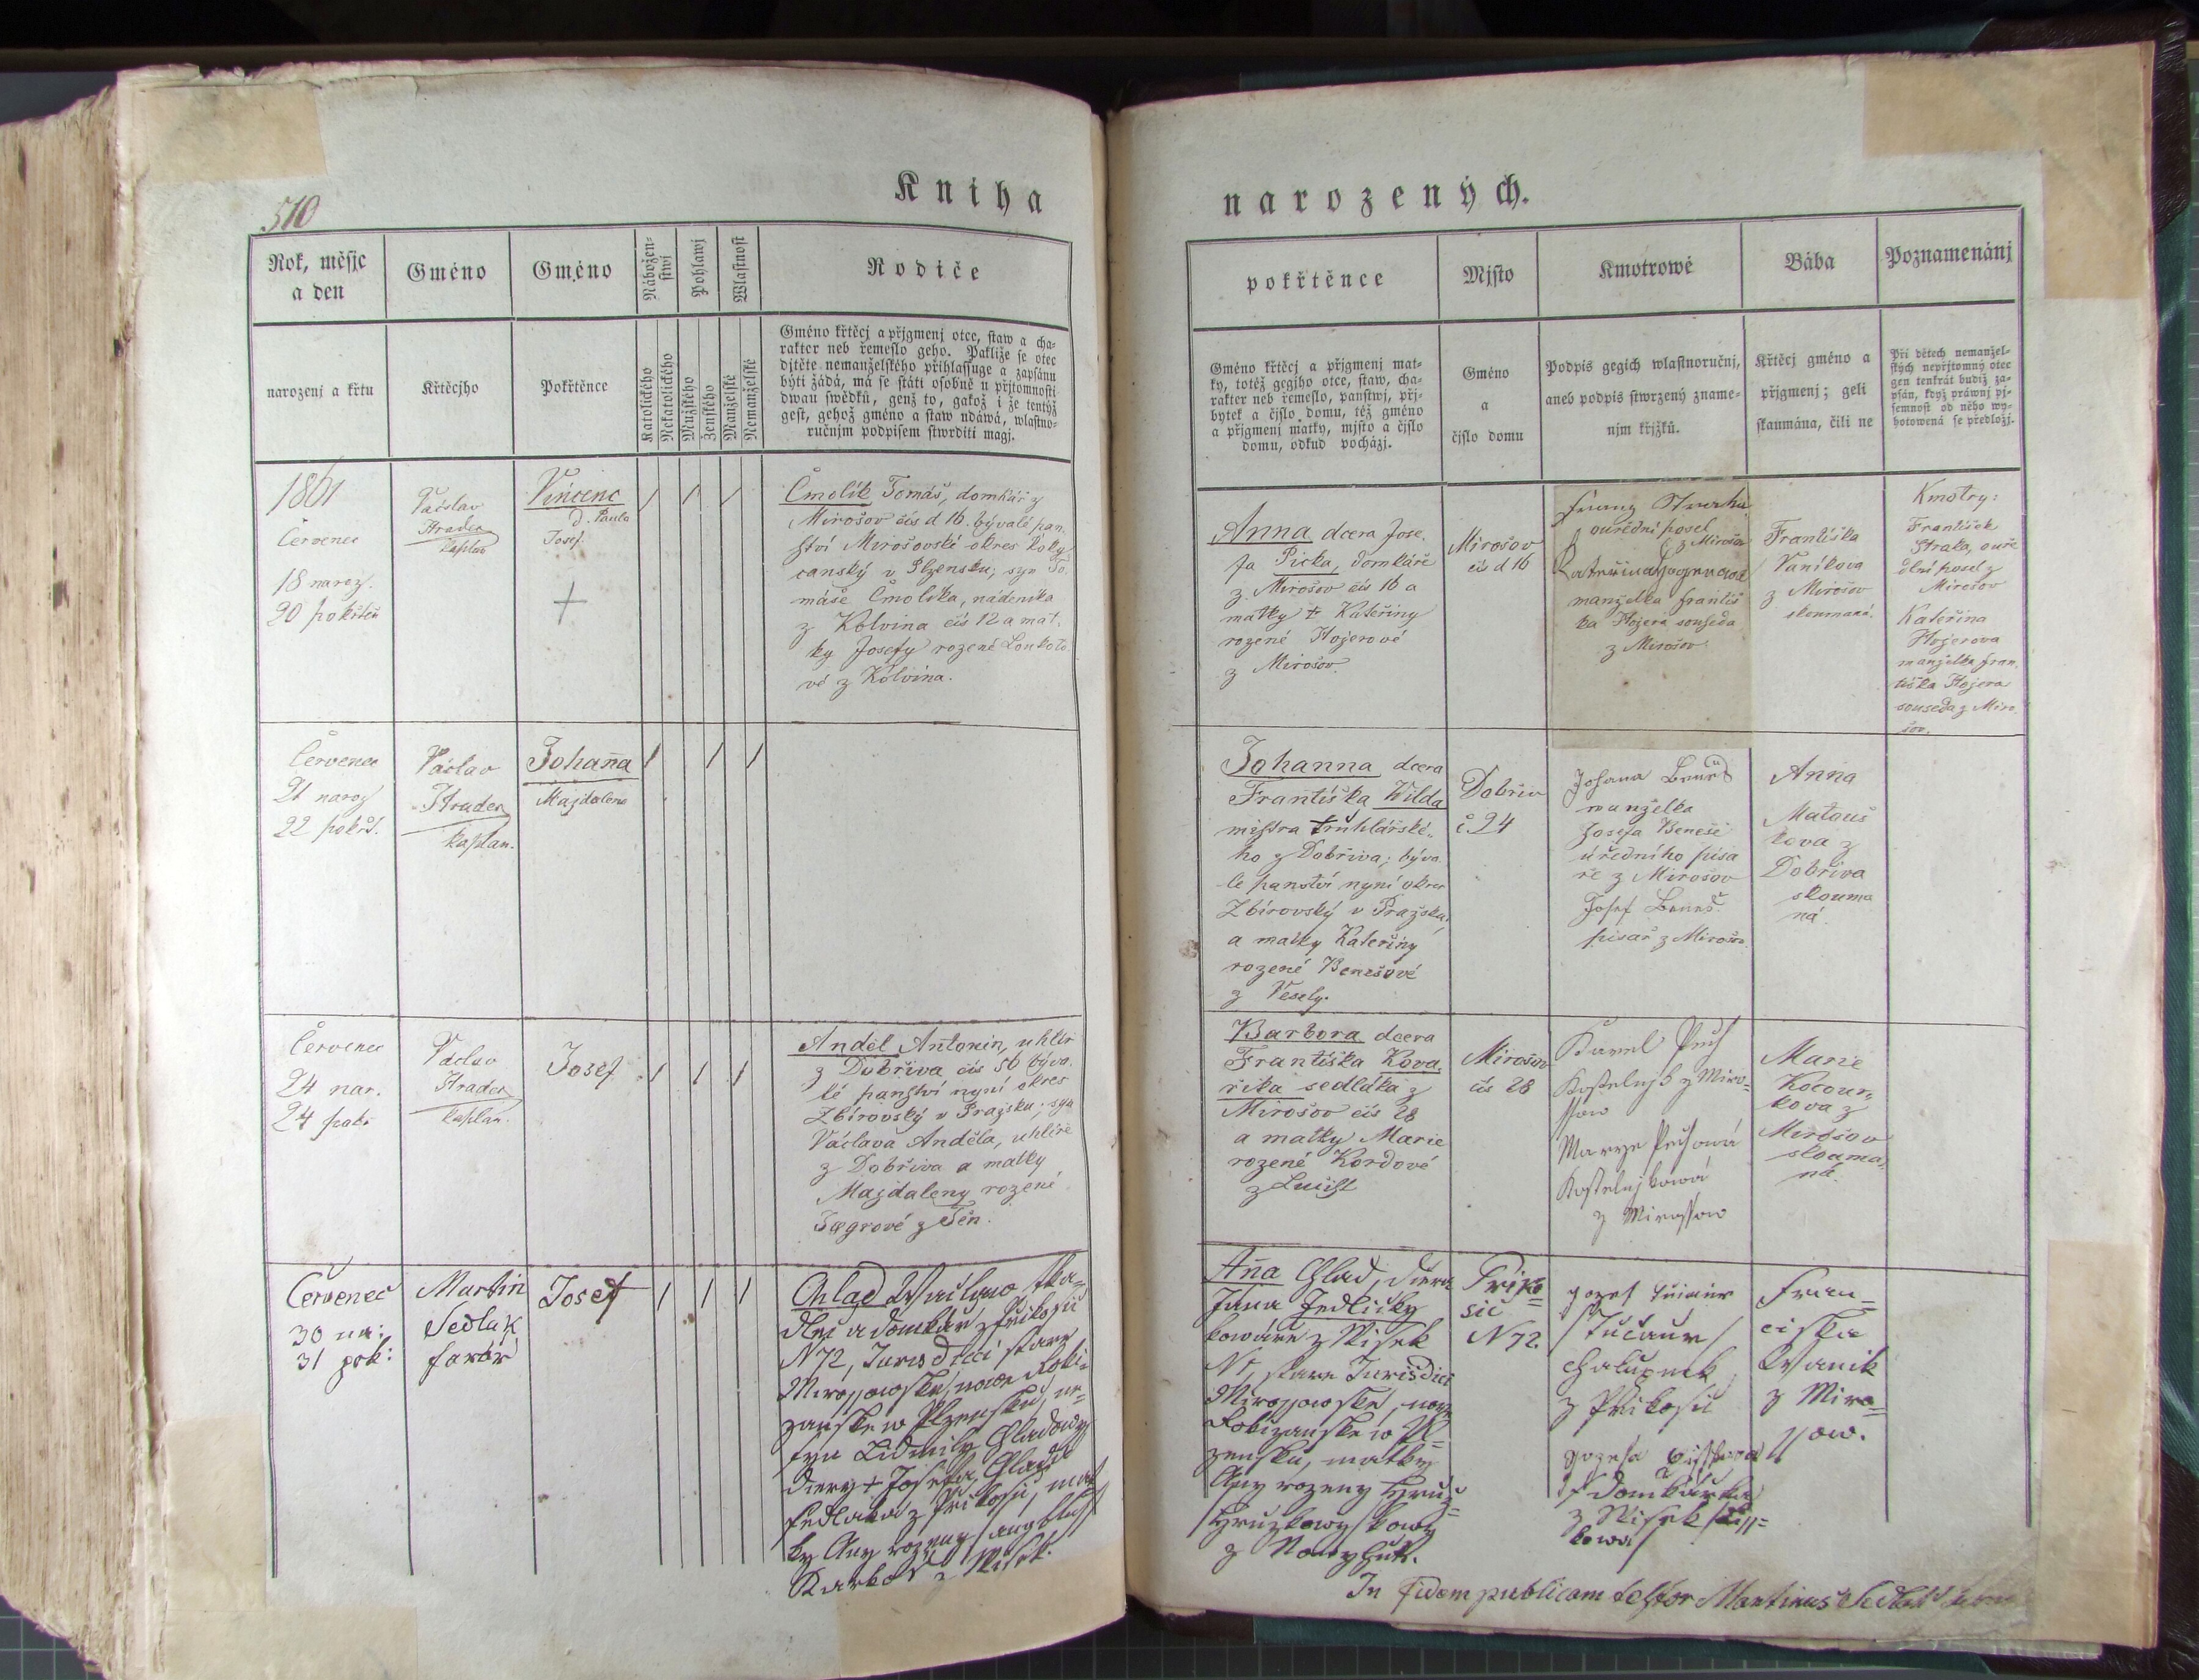 510
Kniha
Rok, měsjc
a den
Gméno
Gméno
Nábožen-
stwí
Pohlawj
Wlastnost
Rodiče
narozenj a křtu
Křtěcjho
Pokřtěnce
Katolického
Nekatolického
Mužského
Ženského
Manželské
Nemanželské
Gméno křtěcj a přjgmenj otce, staw a cha-
rakter neb řemeslo geho. Pakliže se otec
djtěte nemanželského přihlassuge a zapsánu
býti žádá, má se státi osobně u přjtomnosti
dwau swědků, genž to, gakož i že tentýž
gest, gehož gméno a staw udáwá, wlastno-
ručnjm podpisem stwrditi magj.
1861
Červenec
18 naroz.
20 pokřtěn
Václav
Hradec
kaplan
Vincenc
d. Paula
Josef.
Čmolík Tomáš, domkář z
Mirošov čís d 16. bývalé pan.
ství Mirošovské okres Roky
canský v Plzensku; syn To.
máše Čmolíka, nádeníka
z Kolvína čís 12 a mat.
ky Josefy rozené Loukoto
vé z Kolvína.
Červenec
21 naroz
22 pokřt.
Václav
Hradec
kaplan.
Johanna
Majdalena
Červenec
24 nar.
24 pokř
Václav
Hradec
kaplan.
Josef
Anděl Antonin, uhlíř
z Dobřiva čís 56 býva.
lé panství nyní okres
Zbirovský v Pražsku; syn
Václava Anděla, uhlíře
z Dobřiva a matky
Majdaleny rozené
Jægrové z Těn.
Červenec
30 na:
31 pok:
Martin
Sedlak
farář
Josef
Chlad Waclaw, tka-
dlec a domkář z Přikosic
N 72, Jurisdicci stare
Mirossowske, nowe Roki-
zanske w Plzensku, ne-
syn Lidmily Chladowy
dcery + Josefa Chlada
sedlaka z Přikosic, mat
ky Any rozeny
z Wisek.
narozených.
pokřtěnce
Mjsto
Kmotrowé
Bába
Poznamenánj
Gméno křtěcj a přjgmenj mat-
ky, totéž gegjho otce, staw, cha-
rakter neb řemeslo, panstwj, přj-
bytek a čjslo domu, též gméno
a přjgmenj matky, mjsto a čjslo
domu, odkud pocházj.
Gméno
a
čjslo domu
Podpis gegich wlastnoručnj,
aneb podpis stwrzený zname-
njm křjžků.
Křtěcj gméno a
přjgmenj; geli
skaumána, čili ne
Při dětech nemanžel-
ských nepřjtomný otec
gen tenkrát budiž za-
psán, když práwnj pj-
semnost od něho wy-
hotowená se předložj.
Anna dcera Jose.
fa Picka, domkáře
z Mirošov čís 16 a
matky + Kateřiny
rozené Hojerové
z Mirošov.
Mirošov
čís d 16
ouřední posel
z Mirošov
Kateřina
manželka Františ
ka Hojera souseda
z Mirošov
Františka
Vaníkova
z Mirošov
skoumaná.
Kmotry:
František
Straka, ouře
dlní posel z
Mirošov
Kateřina
Hojerova
manželka Fran.
tiška Hojera
souseda z Miro.
šov.
Johanna dcera
Františka Wilda
mistra truhlářské.
ho z Dobřiva; býva
lé panství nyní okres
Zbirovský v Pražsku,
a matky Kateřiny
rozené Benešové
z Vesely.
Dobřiv
č. 24
Johana Beneš
manželka
Josefa Beneše
úředního písa
ře z Mirošov
Josef Beneš
písař z Mirošov.
Anna
Matouš
kova z
Dobřiva
skouma
ná
Barbora dcera
Františka Kova.
říka sedláka z
Mirošov čís 28
a matky Marie
rozené Kordové
z
Mirošov
čís 28
Karel Pech
Kostelnjk z Miro-
ssow
Marye Pechowá
Kostelnjkowá
z Mirossow
Marie
Kocour-
kova z
Mirošov
skouma.
ná.
Aña Chlad, dcera
Jana Jedličky
kowáře z Wisek
N , stare Jurisdici
Mirossowske, nowe
Rokizanske w Pl-
zensku, matky
Any rozeny Hruz-
/Hruzkowy/ kowy
z Nowy huti.
Přiko-
sic
N 72.
/Tučaur/
Chalupnik
z Přikosic
domkářka
z Wisek
kowa/
Fran-
ciska
Wanik
z Miro-
ssow.
In fidem publicam testor Martinus Sedlak